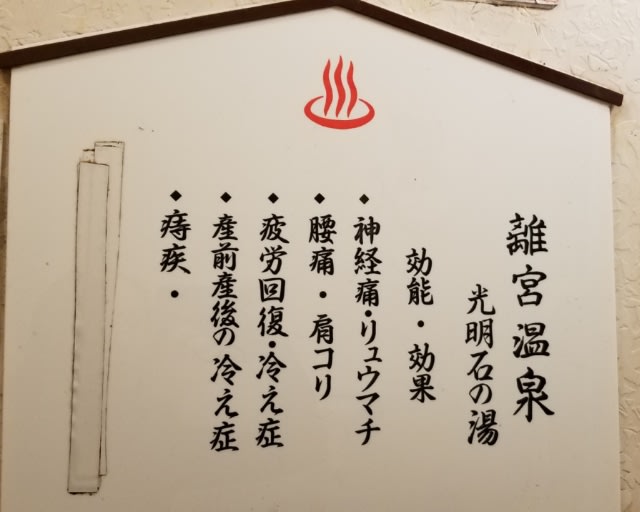 離宮温泉
光明石の湯
効能・効果
◆神経痛・リュウマチ
◆腰痛・肩コリ
◆疲労回復・冷え症
◆産前産後の冷え症
◆痔疾・